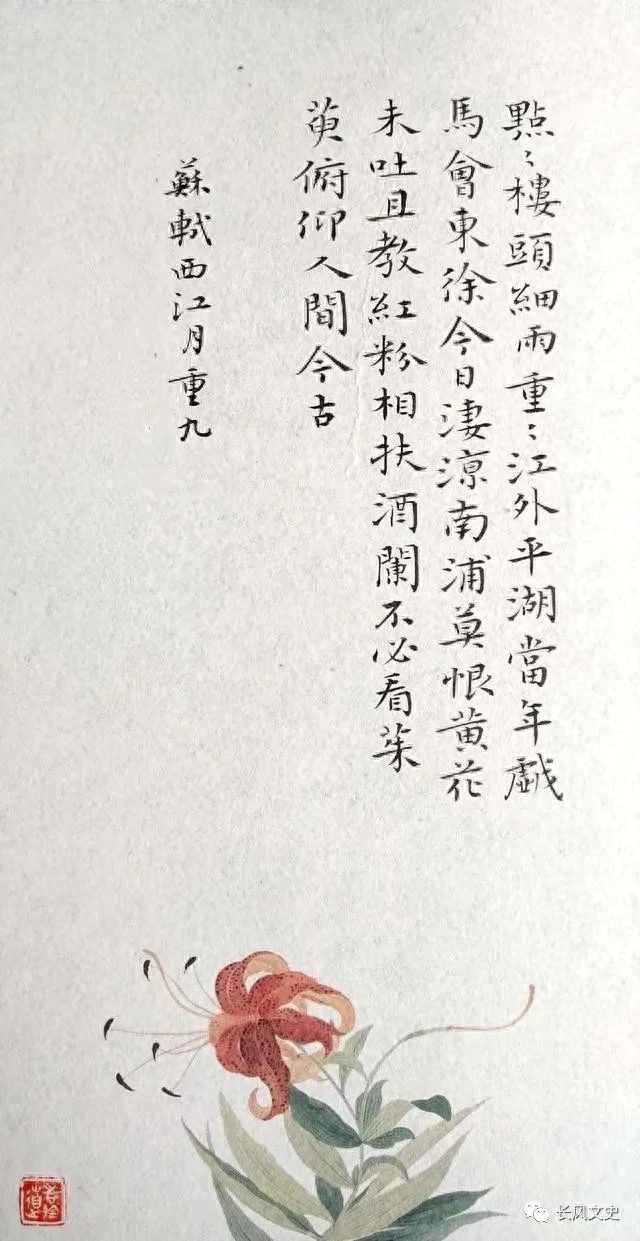 點〻樓頭細雨重〻江外平湖當年戲
馬會東徐今日淒涼南浦莫恨黃花
未吐且教紅粉相扶酒闌不必看茱
萸俯仰人間今古
蘇軾西江月重九
长风文史